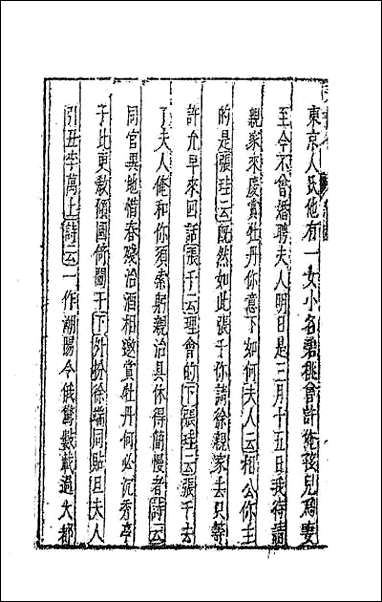 東京人氏他有一女小名碧桃曾許俺孩兒爲妻
至今不曾婚聘夫人明日是三月十五日我待請
親家來慶賞牡丹你意下如何夫人云相公你主
的是張珪云旣然如此張千你請徐親家去只等
許允早來回話張千云理會的下張珪云張千去
了夫人俺和你須索躬親治具休得簡慢者詩云
同官異地惜春殘治酒相邀賞牡丹何必沉香亭
子比更敎傾國倚闌干下外扮徐端同貼旦夫人
引丑李萬上詩云一作潮陽令俄驚數載過大都